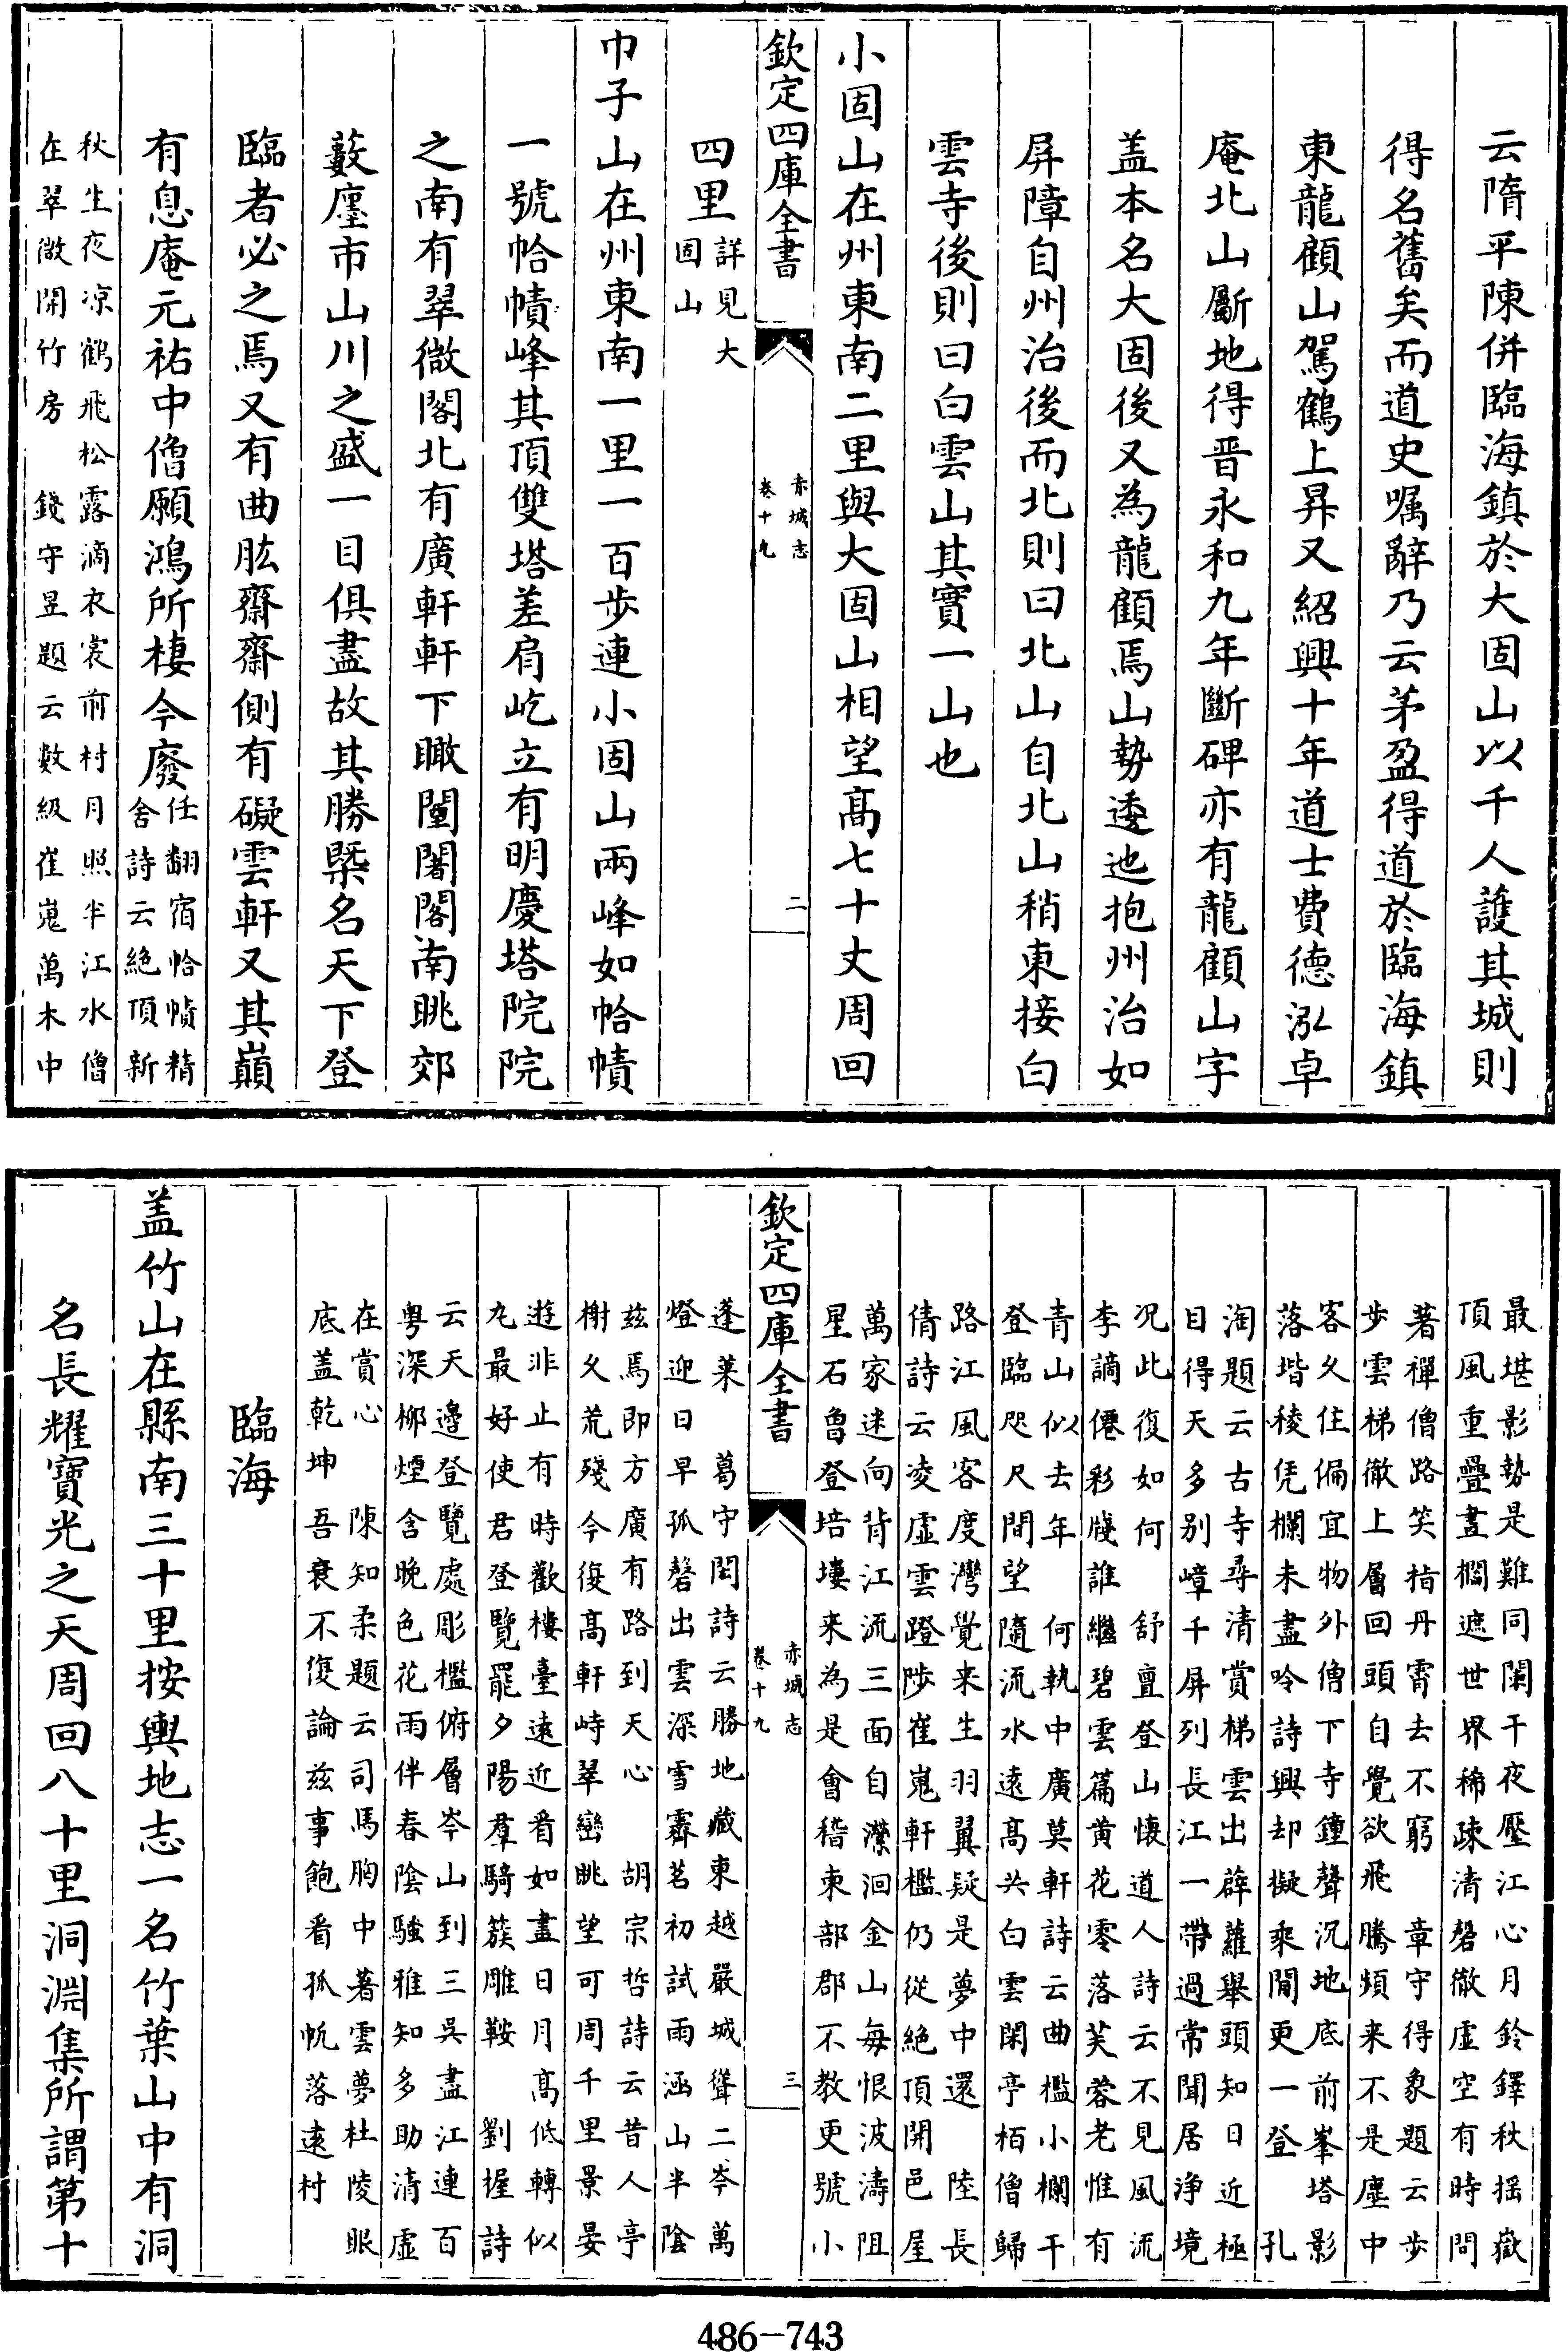 云隋平陳併臨海鎮於大固山以千人護其城則
得名舊矣而道史囑辭乃云茅盈得道於臨海鎮
東龍顧山駕鶴上昇又紹興十年道士費德泓卓
庵北山斸地得晉永和九年斷碑亦有龍顧山字
盖本名大固後又為龍顧焉山勢逶迤抱州治如
屏障自州治後而北則曰北山自北山稍東接白
雲寺後則曰白雲山其實一山也
小固山在州東南二里與大固山相望高七十丈周回
欽定四庫全書
赤城志
卷十九
二
四里詳見大
固山
巾子山在州東南一里一百步連小固山兩峰如帢幘
一號帢幘峰其頂雙塔差肩屹立有明慶塔院院
之南有翠微閣北有廣軒軒下瞰闤闍閣南眺郊
藪廛市山川之盛一目俱盡故其勝槩名天下登
臨者必之焉又有曲肱齋齋側有礙雲軒又其巔
有息庵元祐中僧願鴻所棲今廢任翻宿帢幘精
舍詩云絶頂新
秋生夜凉鶴飛松露滴衣裳前村月照半江水僧
在翠微開竹房　錢守昱題云數級崔嵬萬木中
最堪影勢是難同闌干夜壓江心月鈴鐸秋揺嶽
頂風重疊畫櫊遮世界稀疎清磬徹虚空有時問
著禪僧路笑指丹霄去不窮　章守得象題云步
步雲梯徹上層回頭自覺欲飛騰頻来不是塵中
客久住偏宜物外僧下寺鐘聲沉地底前峯塔影
落堦稜凭欄未盡吟詩興却擬乘閒更一登　孔
淘題云古寺尋清賞梯雲出薜蘿舉頭知日近極
目得天多别嶂千屏列長江一帶過常聞居淨境
况此復如何　舒亶登山懐道人詩云不見風流
李謫僊彩牋誰繼碧雲篇黄花零落芙蓉老惟有
青山似去年　何執中廣莫軒詩云曲檻小欄干
登臨咫尺間望隨流水遠高共白雲閑亭栢僧歸
路江風客度灣覺来生羽翼疑是夢中還　陸長
倩詩云凌虚雲蹬陟崔嵬軒檻仍從絶頂開邑屋
萬家迷向背江流三面自瀠洄金山每恨波濤阻
星石魯登培塿来為是會稽東部郡不教更號小
欽定四庫全書
赤城志
卷十九
三
蓬莱　葛守閎詩云勝地藏東越嚴城聳二岑萬
燈迎日早孤磬出雲深雪霽茗初試雨涵山半陰
兹焉即方廣有路到天心　胡宗哲詩云昔人亭
榭久荒殘今復高軒峙翠巒眺望可周千里景晏
遊非止有時歡樓臺遠近看如畫日月高低轉似
丸最好使君登覽罷夕陽羣騎簇雕鞍　劉握詩
云天邉登覽處彫檻俯層岑山到三吳盡江連百
粤深栁煙含晚色花雨伴春陰騷雅知多助清虚
在賞心　陳知柔題云司馬胸中著雲夢杜陵眼
底盖乾坤　吾衰不復論兹事飽看孤帆落遠村
臨海
盖竹山在縣南三十里按輿地志一名竹葉山中有洞
名長耀寶光之天周回八十里洞淵集所謂第十
486-743